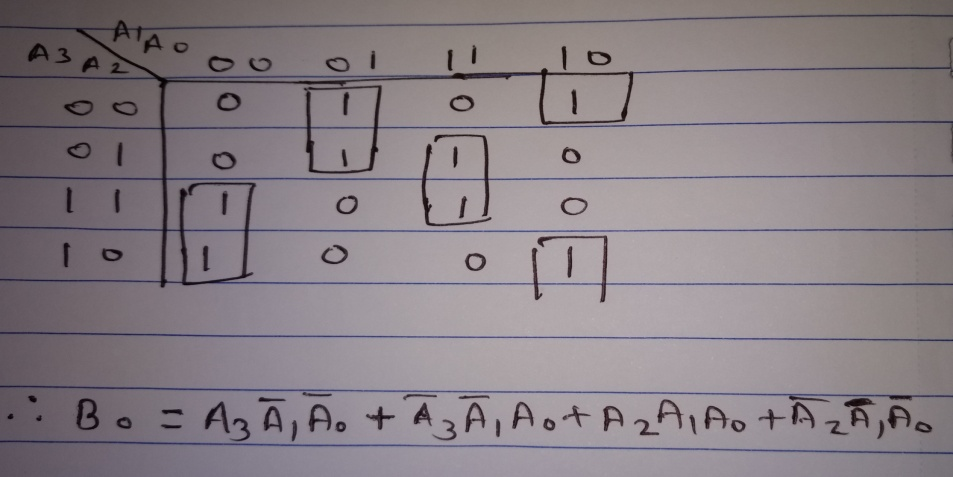 A1A0
A3 A2 00 01 11 10
00 0 1 0 1
01 0 1 1 0
11 1 0 1 0
10 1 0 0 1
∴ B0 = A3A̅1A̅0 + A̅3A̅1A0 + A2A1A0 + A̅2A̅1A̅0